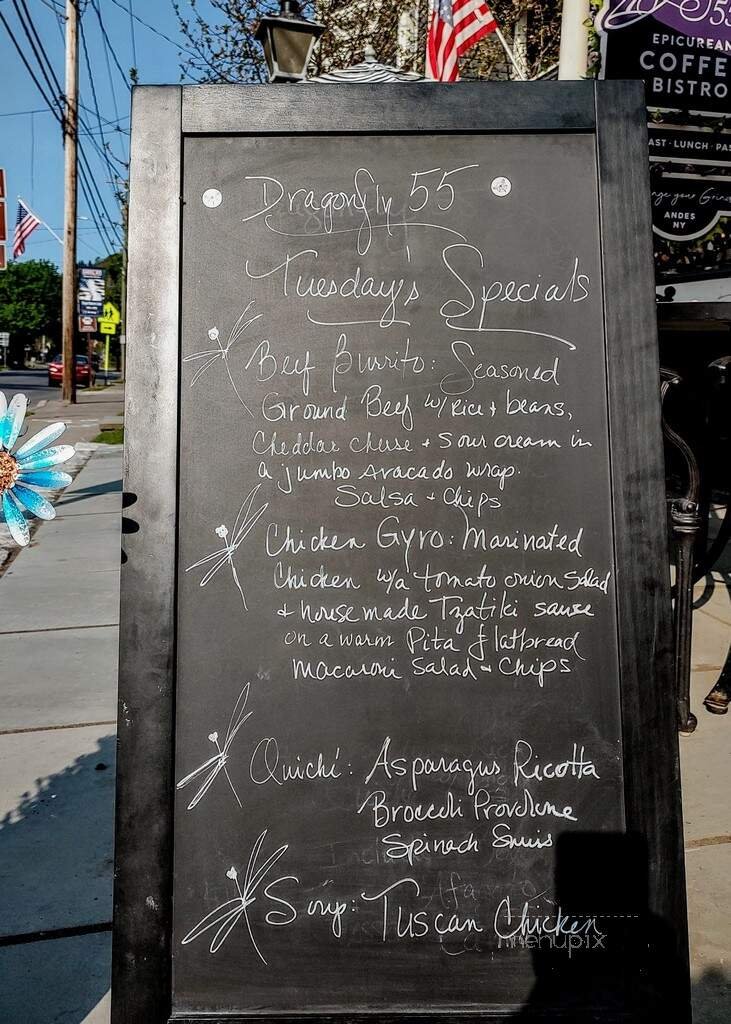 55
EPICUREAN
COFFE
BISTRO
AST · LUNCH · PAS
nge your Grin
ANDES
NY
Dragonfly 55
Tuesday's Specials
Beef Burrito: Seasoned
Ground Beef w/ Rice + beans,
Cheddar cheese + sour cream in
a jumbo Avacado wrap.
Salsa + Chips
Chicken Gyro: Marinated
Chicken w/a tomato onion Salad
+ house made Tzatiki sause
on a warm Pita flatbread
Macaroni Salad + Chips
Quiché: Asparagus Ricotta
Broccoli Provolone
Spinach Swiss
Soup: Tuscan Chicken
menupix